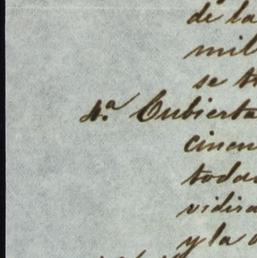 de la
mil
se
4.ª Cubierta
cincu
toda
vidi
y la